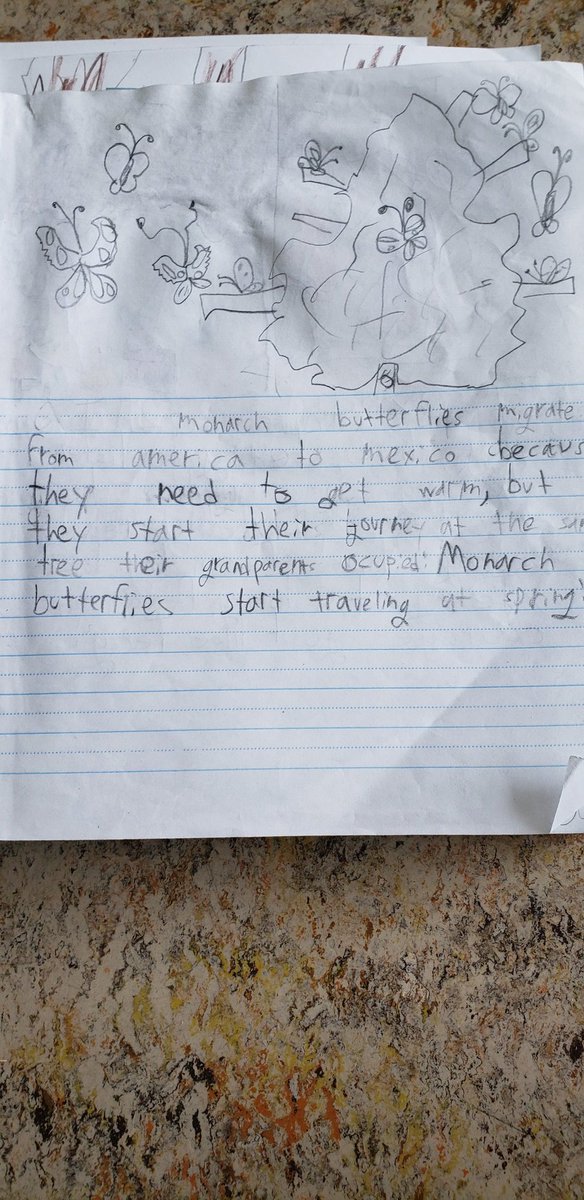 monarch butterflies migrate
from america to mexico becaus
they need to get warm, but
they start their journey at the sam
tree their grandparents ocupied. Monarch
butterflies start traveling at spring